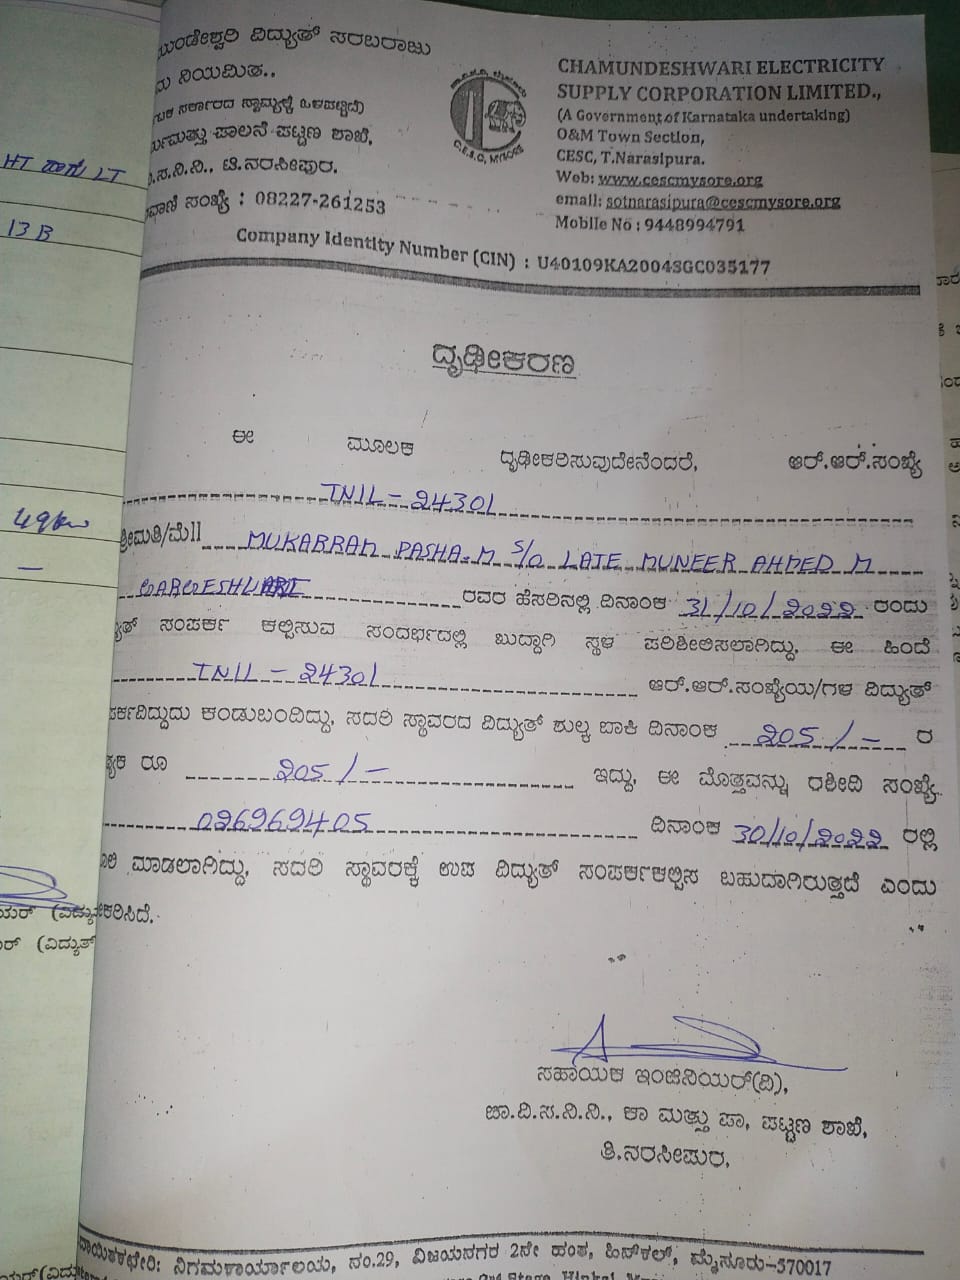 ಮುಂಡೇಶ್ವರಿ ವಿದ್ಯುತ್ ಸರಬರಾಜು
ನಿಯಮಿತ..
ಸರ್ಕಾರದ ಸ್ವಾಮ್ಯಕ್ಕೆ ಒಳಪಟ್ಟಿದೆ)
ಮತ್ತು ಪಾಲನೆ ಪಟ್ಟಣ ಶಾಖೆ,
ಸ.ನಿ.ನಿ., ಟಿ.ನರಸೀಪುರ.
ವಾಣಿ ಸಂಖ್ಯೆ : 08227-261253
CHAMUNDESHWARI ELECTRICITY
SUPPLY CORPORATION LIMITED.,
(A Government of Karnataka undertaking)
O&M Town Section,
CESC, T.Narasipura.
Web: www.cescmysore.org
email: sotnarasipura@cescmysore.org
Mobile No : 9448994791
C.E.S.C, MYSORE
Company Identity Number (CIN) : U40109KA2004SGC035177
HT ಹಾಗು LT
13 B
49kw
ದೃಢೀಕರಣ
ಈ ಮೂಲಕ ದೃಢೀಕರಿಸುವುದೇನೆಂದರೆ, ಆರ್.ಆರ್.ಸಂಖ್ಯೆ
TNIL - 24301
ಶ್ರೀಮತಿ/ಮೆ|| MUKARRAM PASHA.M S/O LATE MUNEER AHMED M
ರವರ ಹೆಸರಿನಲ್ಲಿ ದಿನಾಂಕ 31/10/2022 ರಂದು
ಸಂಪರ್ಕ ಕಲ್ಪಿಸುವ ಸಂದರ್ಭದಲ್ಲಿ ಖುದ್ದಾಗಿ ಸ್ಥಳ ಪರಿಶೀಲಿಸಲಾಗಿದ್ದು, ಈ ಹಿಂದೆ
TNIL - 24301 ಆರ್.ಆರ್.ಸಂಖ್ಯೆಯ/ಗಳ ವಿದ್ಯುತ್
ಪರ್ಕವಿದ್ದುದು ಕಂಡುಬಂದಿದ್ದು, ಸದರಿ ಸ್ಥಾವರದ ವಿದ್ಯುತ್ ಶುಲ್ಕ ಬಾಕಿ ದಿನಾಂಕ 205/- ರ
ರೂ 205/- ಇದ್ದು, ಈ ಮೊತ್ತವನ್ನು ರಶೀದಿ ಸಂಖ್ಯೆ
026969405 ದಿನಾಂಕ 30/10/2022 ರಲ್ಲಿ
ಮಾಡಲಾಗಿದ್ದು, ಸದರಿ ಸ್ಥಾವರಕ್ಕೆ ಉಪ ವಿದ್ಯುತ್ ಸಂಪರ್ಕಕಲ್ಪಿಸ ಬಹುದಾಗಿರುತ್ತದೆ ಎಂದು
ಕರಿಸಿದೆ.
ಸಹಾಯಕ ಇಂಜಿನಿಯರ್(ವಿ),
ಚಾ.ವಿ.ಸ.ನಿ.ನಿ., ಕಾ ಮತ್ತು ಪಾ, ಪಟ್ಟಣ ಶಾಖೆ,
ತಿ.ನರಸೀಪುರ.
ನಿಗಮಕಾರ್ಯಾಲಯ, ನಂ.29, ವಿಜಯನಗರ 2ನೇ ಹಂತ, ಹಿನ್‌ಕಲ್, ಮೈಸೂರು-570017